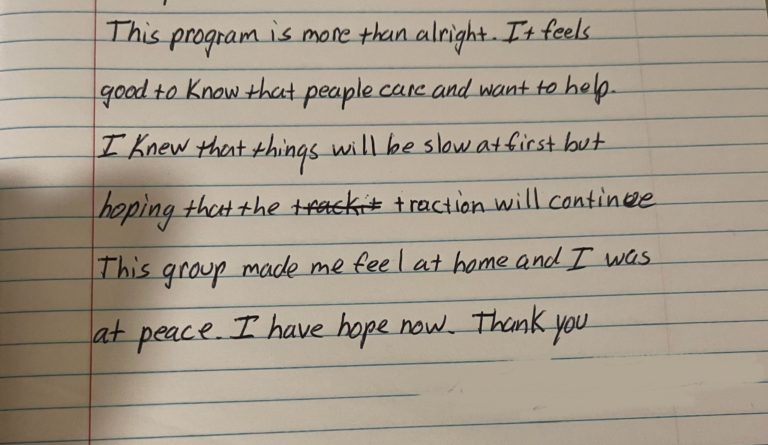 This program is more than alright. It feels
good to know that peaple care and want to help.
I Knew that things will be slow at first but
hoping that the trackit traction will continue
This group made me feel at home and I was
at peace. I have hope now. Thank you